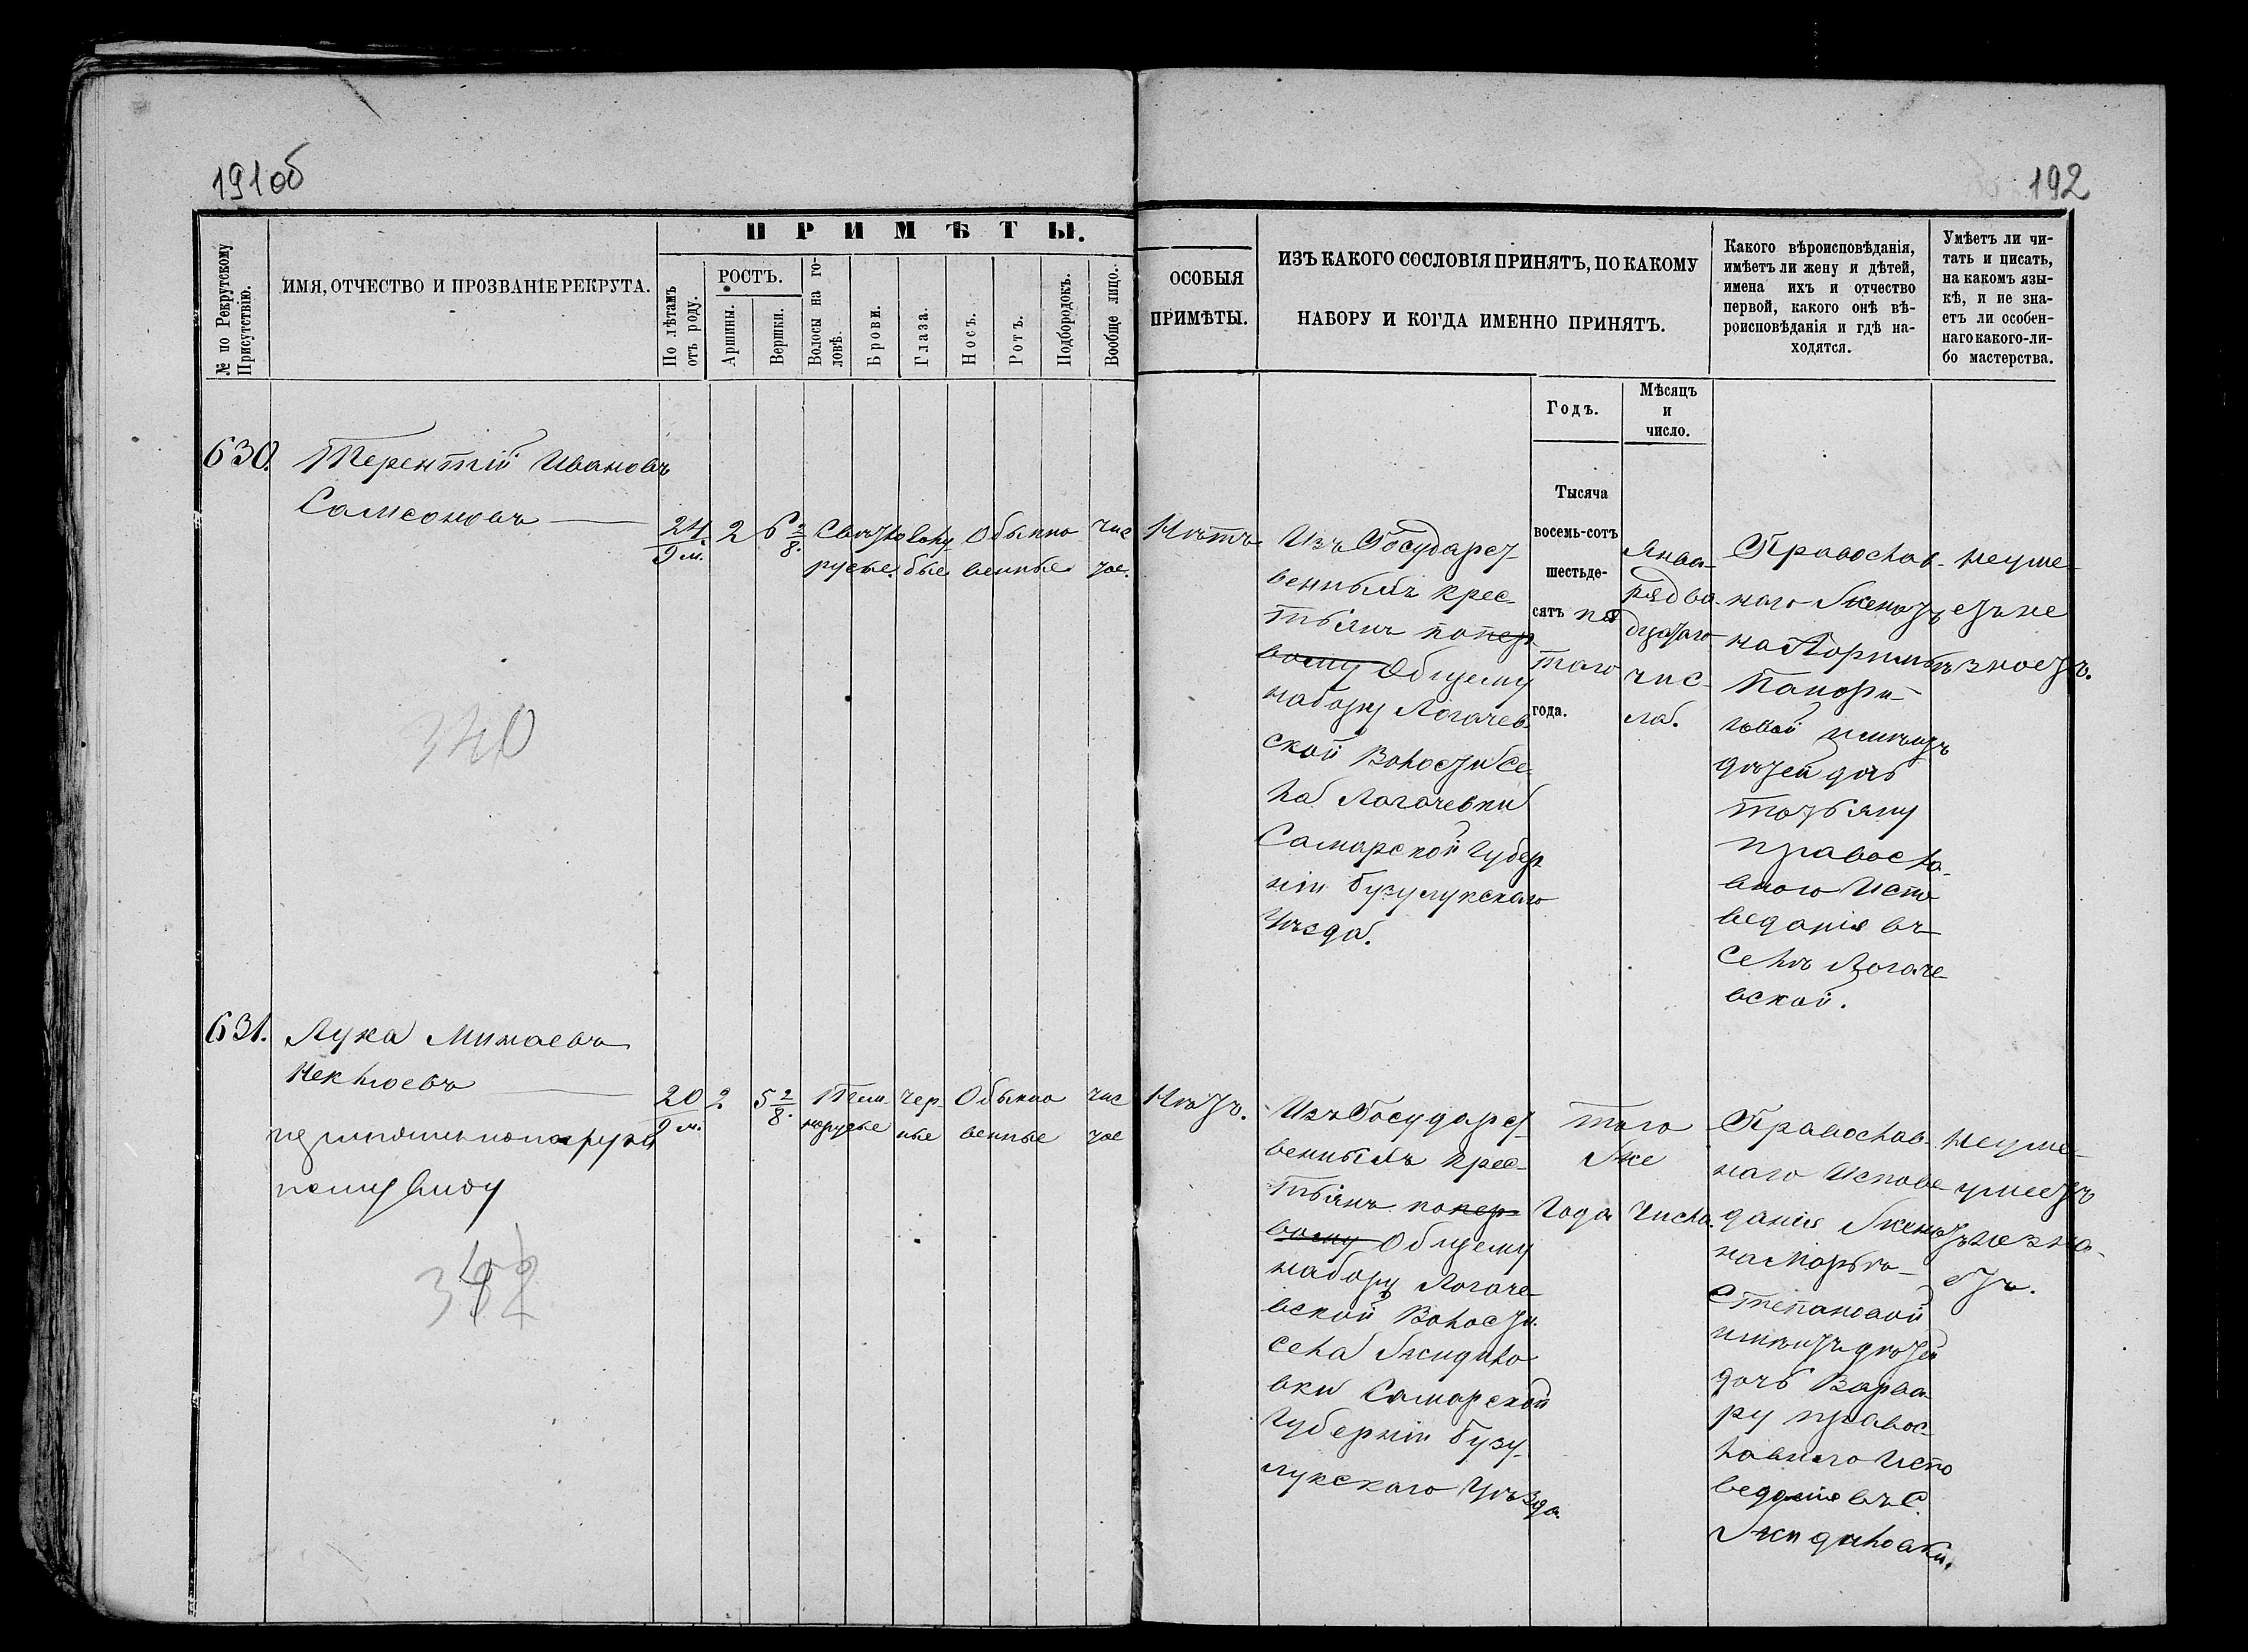 191об
192
ПРИМѢТЫ.
№ по Рекрутскому
Присутствію.
ИМЯ, ОТЧЕСТВО И ПРОЗВАНІЕ РЕКРУТА.
По лѣтамъ
отъ роду.
РОСТЪ.
Аршины.
Вершки.
Волосы на го-
ловѣ.
Брови.
Глаза.
Носъ.
Ротъ.
Подбородокъ.
Вообще лицо.
ОСОБЫЯ
ПРИМѢТЫ.
ИЗЪ КАКОГО СОСЛОВІЯ ПРИНЯТЪ, ПО КАКОМУ
НАБОРУ И КОГДА ИМЕННО ПРИНЯТЪ.
Какого вѣроисповѣданія,
имѣетъ ли жену и дѣтей,
имена ихъ и отчество
первой, какого онѣ вѣ-
роисповѣданія и гдѣ на-
ходятся.
Умѣетъ ли чи-
тать и писать,
на какомъ язы-
кѣ, и не зна-
етъ ли особен-
наго какого-ли-
бо мастерства.
Годъ.
Мѣсяцъ
и
число.
630.
Терентій Ивановъ
Самсоновъ
24
9 м.
2
6 2/8.
Свѣтло
русые.
голу
бые
Обыкно
венные
чис
тое.
Нѣтъ
Изъ Государст
венныхъ крес-
тьянъ по пер
вому Общему
набору Логачев
ской Волости Се
ла Логачевки
Самарской Губер
ніи Бузулукскаго
Уѣзда.
Тысяча
восемь-сотъ
шестьде-
сятъ пя
таго
года.
Янва-
ря два
дцатаго
чис-
ла.
Православ-
наго женатъ
на
имѣитъ
дѣтей дочь
татьяну
правосла-
внаго Испо
веданія въ
Селѣ Логаче
вской.
неуме-
етъ не
знаетъ.
340
631.
Лука Минаевъ
Неклюевъ
20
9 м.
2
5 2/8.
Тем-
норусые
чер-
ные
Обыкно
венные
чис
тое
Нѣтъ.
Изъ Государст
венныхъ крес-
тьянъ по пер
вому Общему
набору Логаче
вской Волости
села Жидило
вки Самарской
Губерніи Бузу-
лукскаго Уѣзда.
того
же
Года
Числа.
Православ-
наго Испове
данія женатъ
на Марьѣ
Степановой
имѣитъ дѣтей
дочь Варва
ру правос-
лавнаго Испо
веданія въ С.
Жидиловки.
неуме-
умеетъ
незна-
етъ.